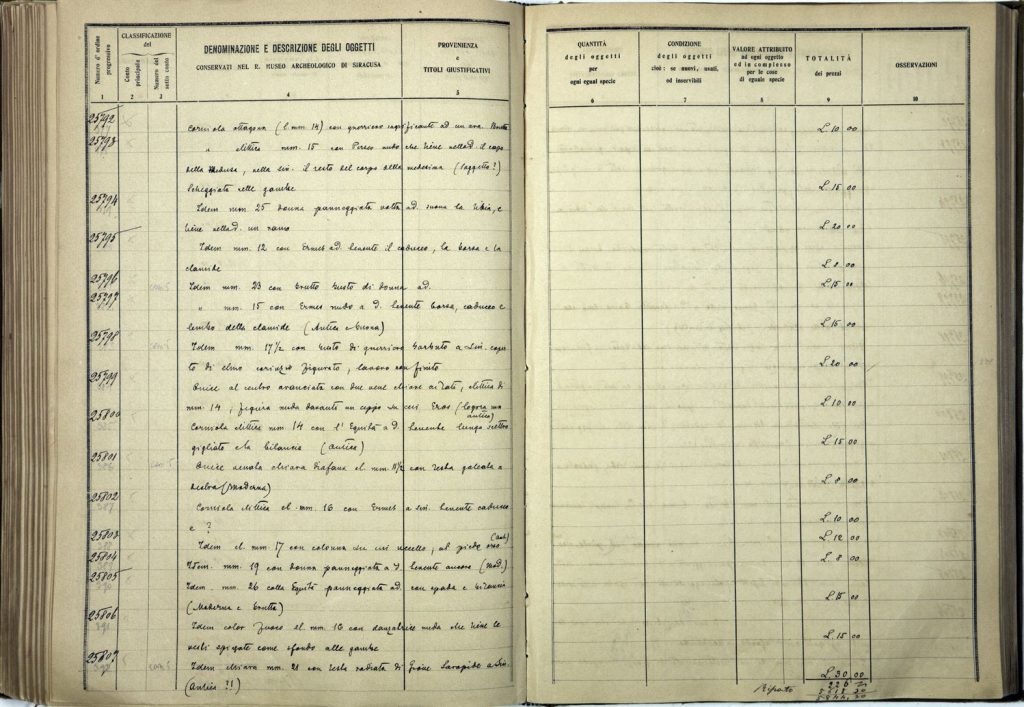 Numero d'ordine progressivo
CLASSIFICAZIONE
del
Conto principale
Numero del sotto conto
DENOMINAZIONE E DESCRIZIONE DEGLI OGGETTI
CONSERVATI NEL R. MUSEO ARCHEOLOGICO DI SIRACUSA
PROVENIENZA
e
TITOLI GIUSTIFICATIVI
1 2 3 4 5
25792 Corniola ottagona (l mm. 14) con guerriero sagrificante ad un ara.
25793 " ellittica mm. 15 con Perseo nudo che tiene nella d. il capo
della Medusa, nella sin. il resto del corpo della medesima (soggetto?)
Scheggiata nelle gambe
25794 Idem mm. 25 donna panneggiata volta a d. suona la tibia, e
tiene nella d. un ramo
25795 Idem mm. 12 con Ermes a d. tenente il caduceo, la borsa e la
clamide
25796 Idem mm. 23 con brutto busto di donna a d.
25797 " mm. 15 con Ermes nudo a d. tenente borsa, caduceo e
lembo della clamide (Antica e buona)
25798 Idem mm. 17 1/2 con busto di guerriero barbuto a sin. coper-
to di elmo corinzio figurato, lavoro non finito
25799 Onice al centro aranciata con due zone chiare ai lati, ellittica di
mm. 14; figura nuda davanti un ceppo su cui Eros (logora ma
antica)
25800 Corniola ellittica mm 14 con l'Equità a d. tenente lungo scettro
gigliato e la bilancia (antica)
25801 Onice chiara diafana el. mm 11 1/2 con testa galeata a
destra (Moderna)
25802 Corniola ellittica el. mm. 16 con Ermes a sin. tenente caduceo
e ?
25803 Idem el. mm. 17 con colonna su cui uccello, al piede
25804 Idem. mm. 19 con donna panneggiata a d. tenente ancora (Mod.)
25805 Idem. mm. 26 colla Equità panneggiata a d. con spada e bilancia
(Moderna e brutta)
25806 Idem color fuoco el. mm. 16 con danzatrice nuda che tiene le
vesti spiegate come sfondo alle gambe
25807 Idem chiara mm. 21 con testa radiata di Giove Serapide a sin.
(Antica ?!)
QUANTITÀ
degli oggetti
per
ogni egual specie
CONDIZIONE
degli oggetti
cioè: se nuovi, usati,
od inservibili
VALORE ATTRIBUITO
ad ogni oggetto
od in complesso
per le cose
di eguale specie
TOTALITÀ
dei prezzi
OSSERVAZIONI
6 7 8 9 10
L. 10 00
L. 15 00
L. 20 00
L. 8 00
L. 15 00
L. 15 00
L. 20 00
L. 10 00
L. 15 00
L. 8 00
L. 10 00
L. 12 00
L. 8 00
L. 15 00
L. 15 00
L. 30 00
Riporto